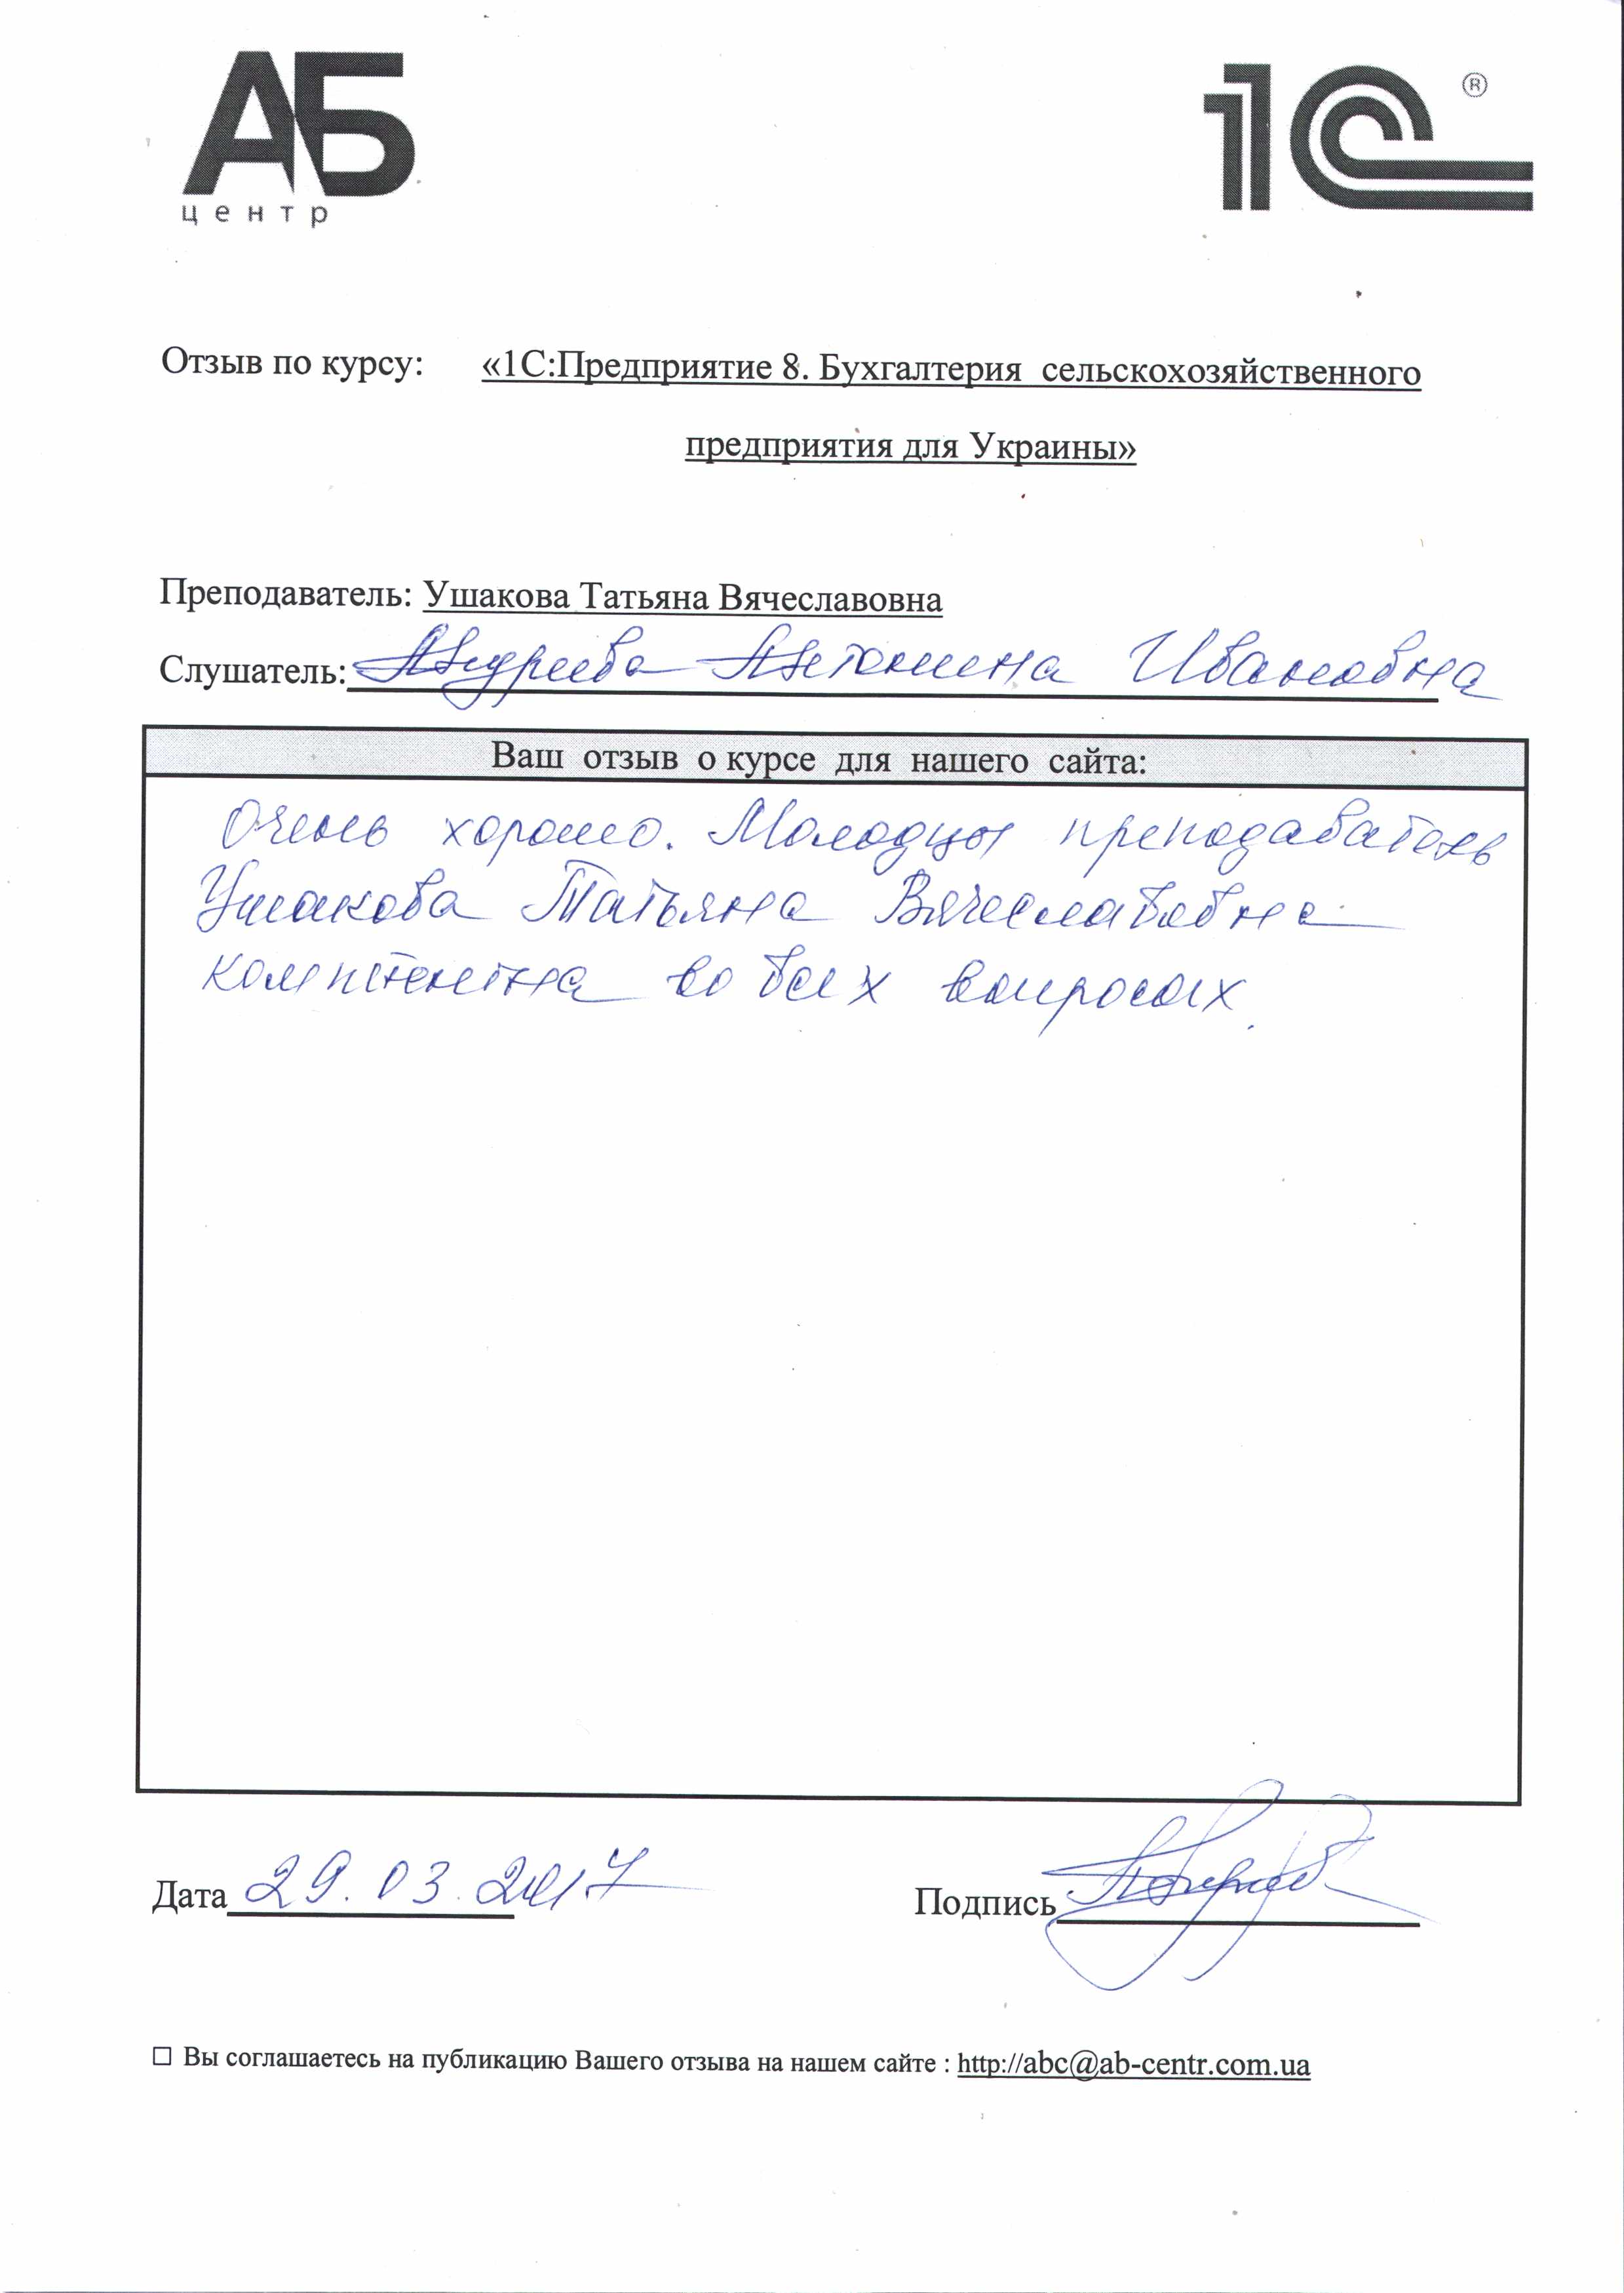 АБ
центр
1С®
Отзыв по курсу: «1С:Предприятие 8. Бухгалтерия сельскохозяйственного
предприятия для Украины»
Преподаватель: Ушакова Татьяна Вячеславовна
Слушатель: Андреева Антонина Ивановна
Ваш отзыв о курсе для нашего сайта:
Очень хорошо. Молодцы преподаватель
Ушакова Татьяна Вячеславовна
компетентна во всех вопросах.
Дата 29.03.2017 Подпись
☐ Вы соглашаетесь на публикацию Вашего отзыва на нашем сайте : http://abc@ab-centr.com.ua